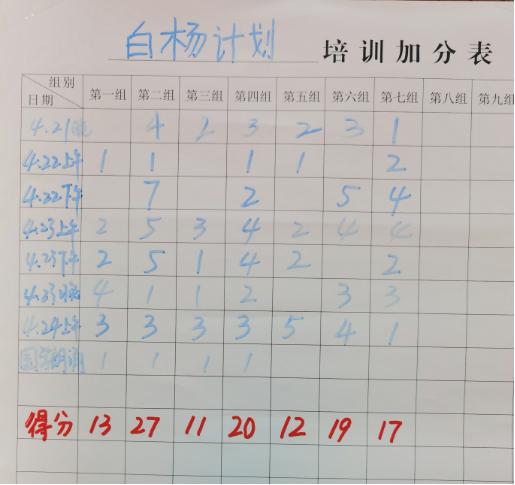 白杨计划 培训加分表
组别 第一组 第二组 第三组 第四组 第五组 第六组 第七组 第八组 第九组
日期
4.21晚 4 2 3 2 3 1
4.22上午 1 1 1 1 2
4.22下午 7 2 5 4
4.23上午 2 5 3 4 2 4 4
4.23下午 2 5 1 4 2 2
4.23晚 4 1 1 2 3 3
4.24上午 3 3 3 3 5 4 1
1 1 1 1
得分 13 27 11 20 12 19 17